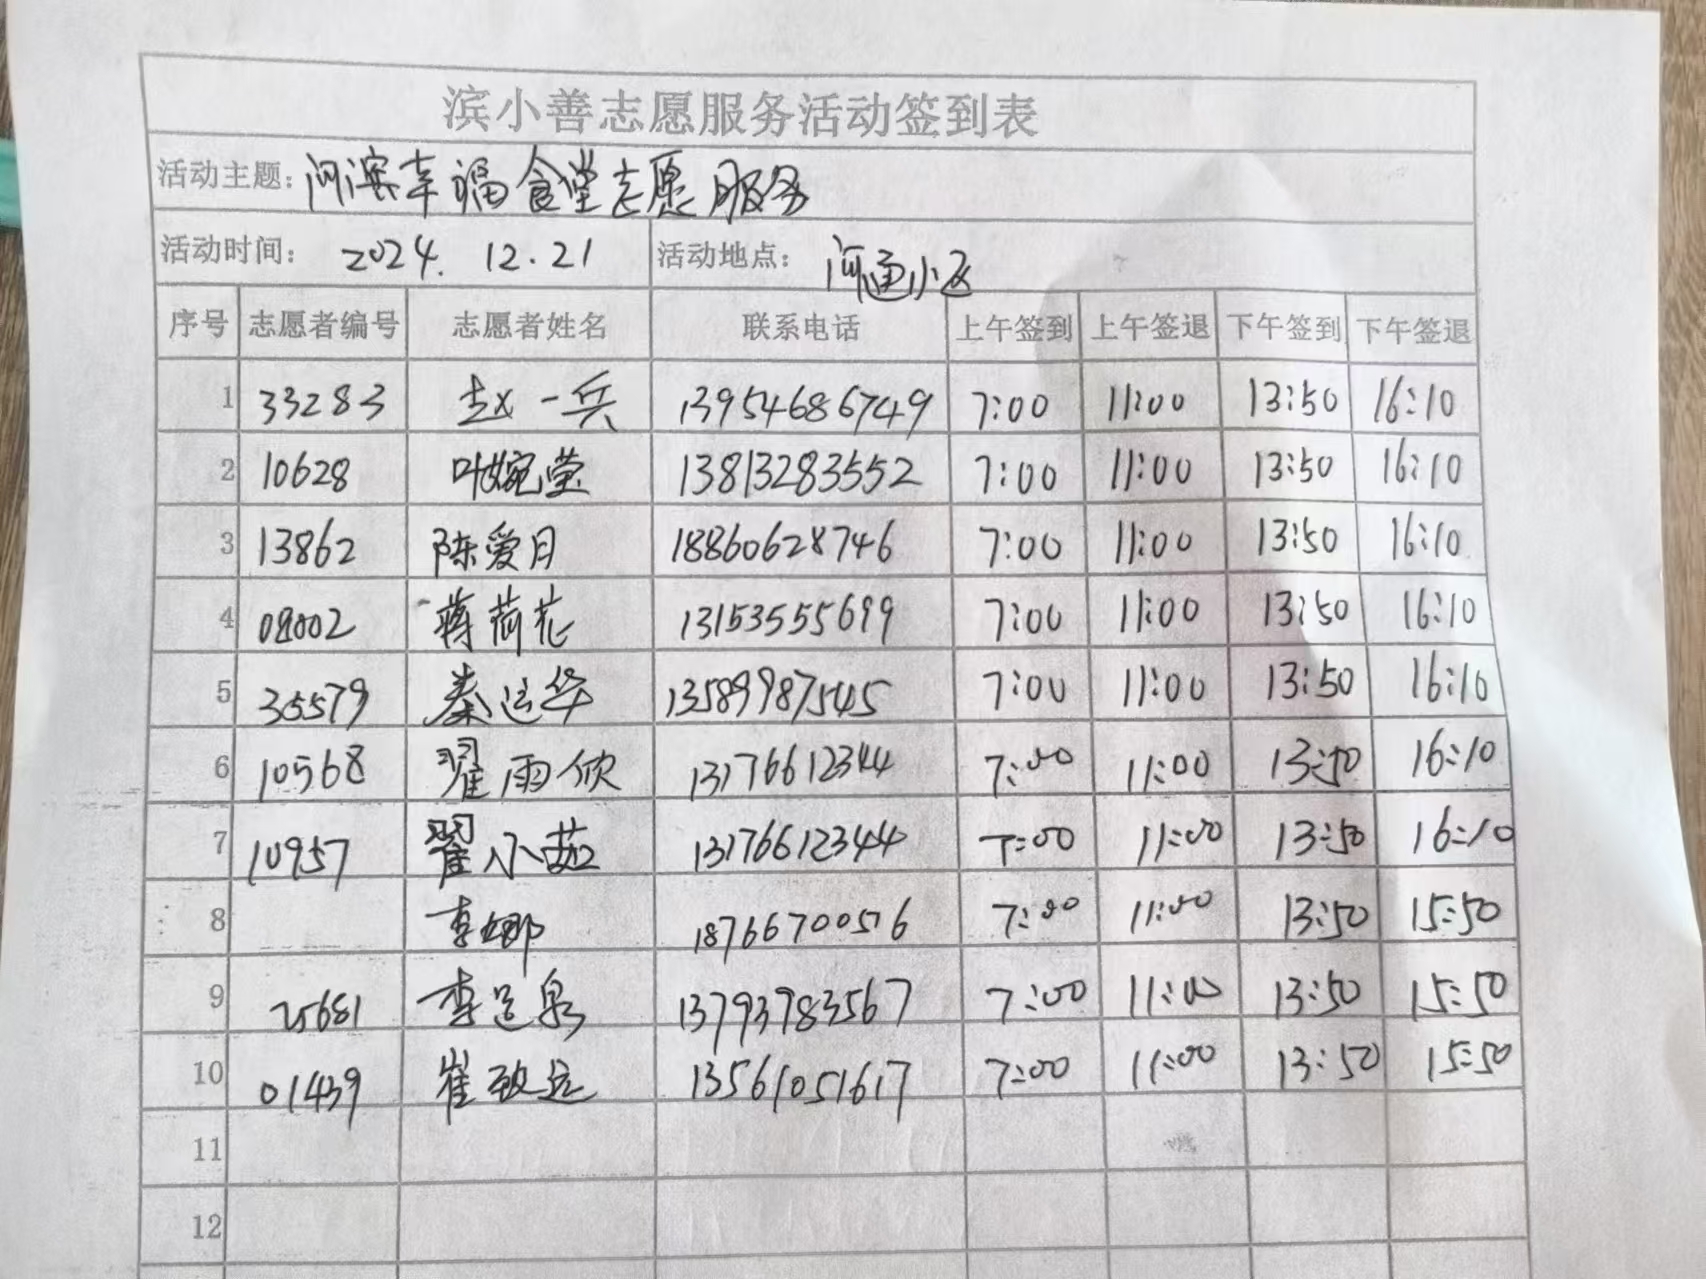 滨小善志愿服务活动签到表
活动主题: 河滨幸福食堂志愿服务
活动时间: 2024.12.21 活动地点: 河通小区
序号 志愿者编号 志愿者姓名 联系电话 上午签到 上午签退 下午签到 下午签退
1 33283 赵一兵 13954686749 7:00 11:00 13:50 16:10
2 10628 叶婉莹 13813283552 7:00 11:00 13:50 16:10
3 13862 陈爱月 18860628746 7:00 11:00 13:50 16:10
4 蒋荷花 13153555699 7:00 11:00 13:50 16:10
5 35579 秦运华 13589987545 7:00 11:00 13:50 16:10
6 10568 翟雨欣 13176612344 7:00 11:00 13:50 16:10
7 10957 翟小茹 13176612344 7:00 11:00 13:50 16:10
8 李娜 18766700576 7:00 11:00 13:50 15:50
9 25681 李道泉 13793783567 7:00 11:00 13:50 15:50
10 01439 崔致远 13561051617 7:00 11:00 13:50 15:50
11
12